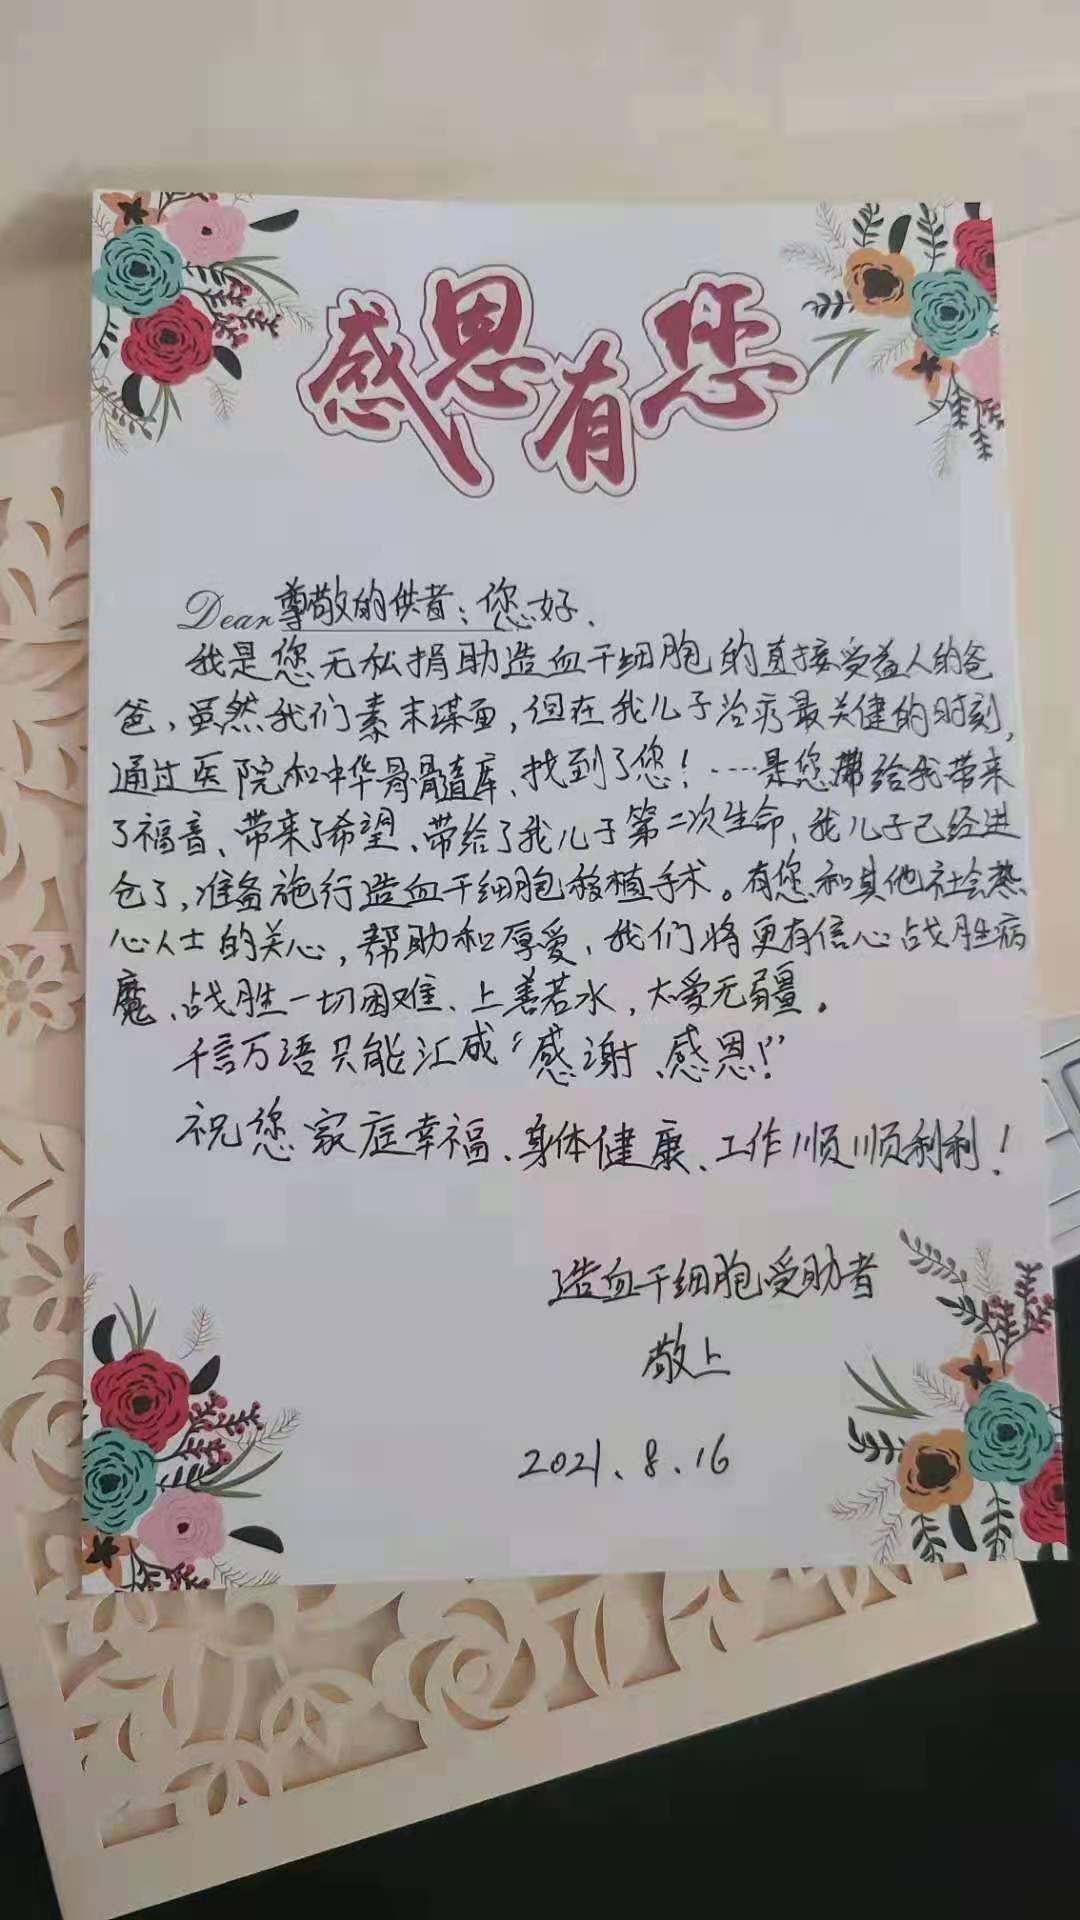 感恩有您
Dear 尊敬的供者：您好、
我是您无私捐助造血干细胞的直接受益人的爸
爸，虽然我们素未谋面，但在我儿子治疗最关健的时刻，
通过医院和中华骨髓库、找到了您！……是您带给我带来
了福音、带来了希望、带给了我儿子第二次生命、我儿子已经进
仓了，准备施行造血干细胞移植手术。有您和其他社会热
心人士的关心，帮助和厚爱，我们将更有信心战胜病
魔、战胜一切困难、上善若水，大爱无疆。
千言万语只能汇成“感谢、感恩！”
祝您家庭幸福、身体健康、工作顺顺利利！
造血干细胞受助者
敬上
2021.8.16